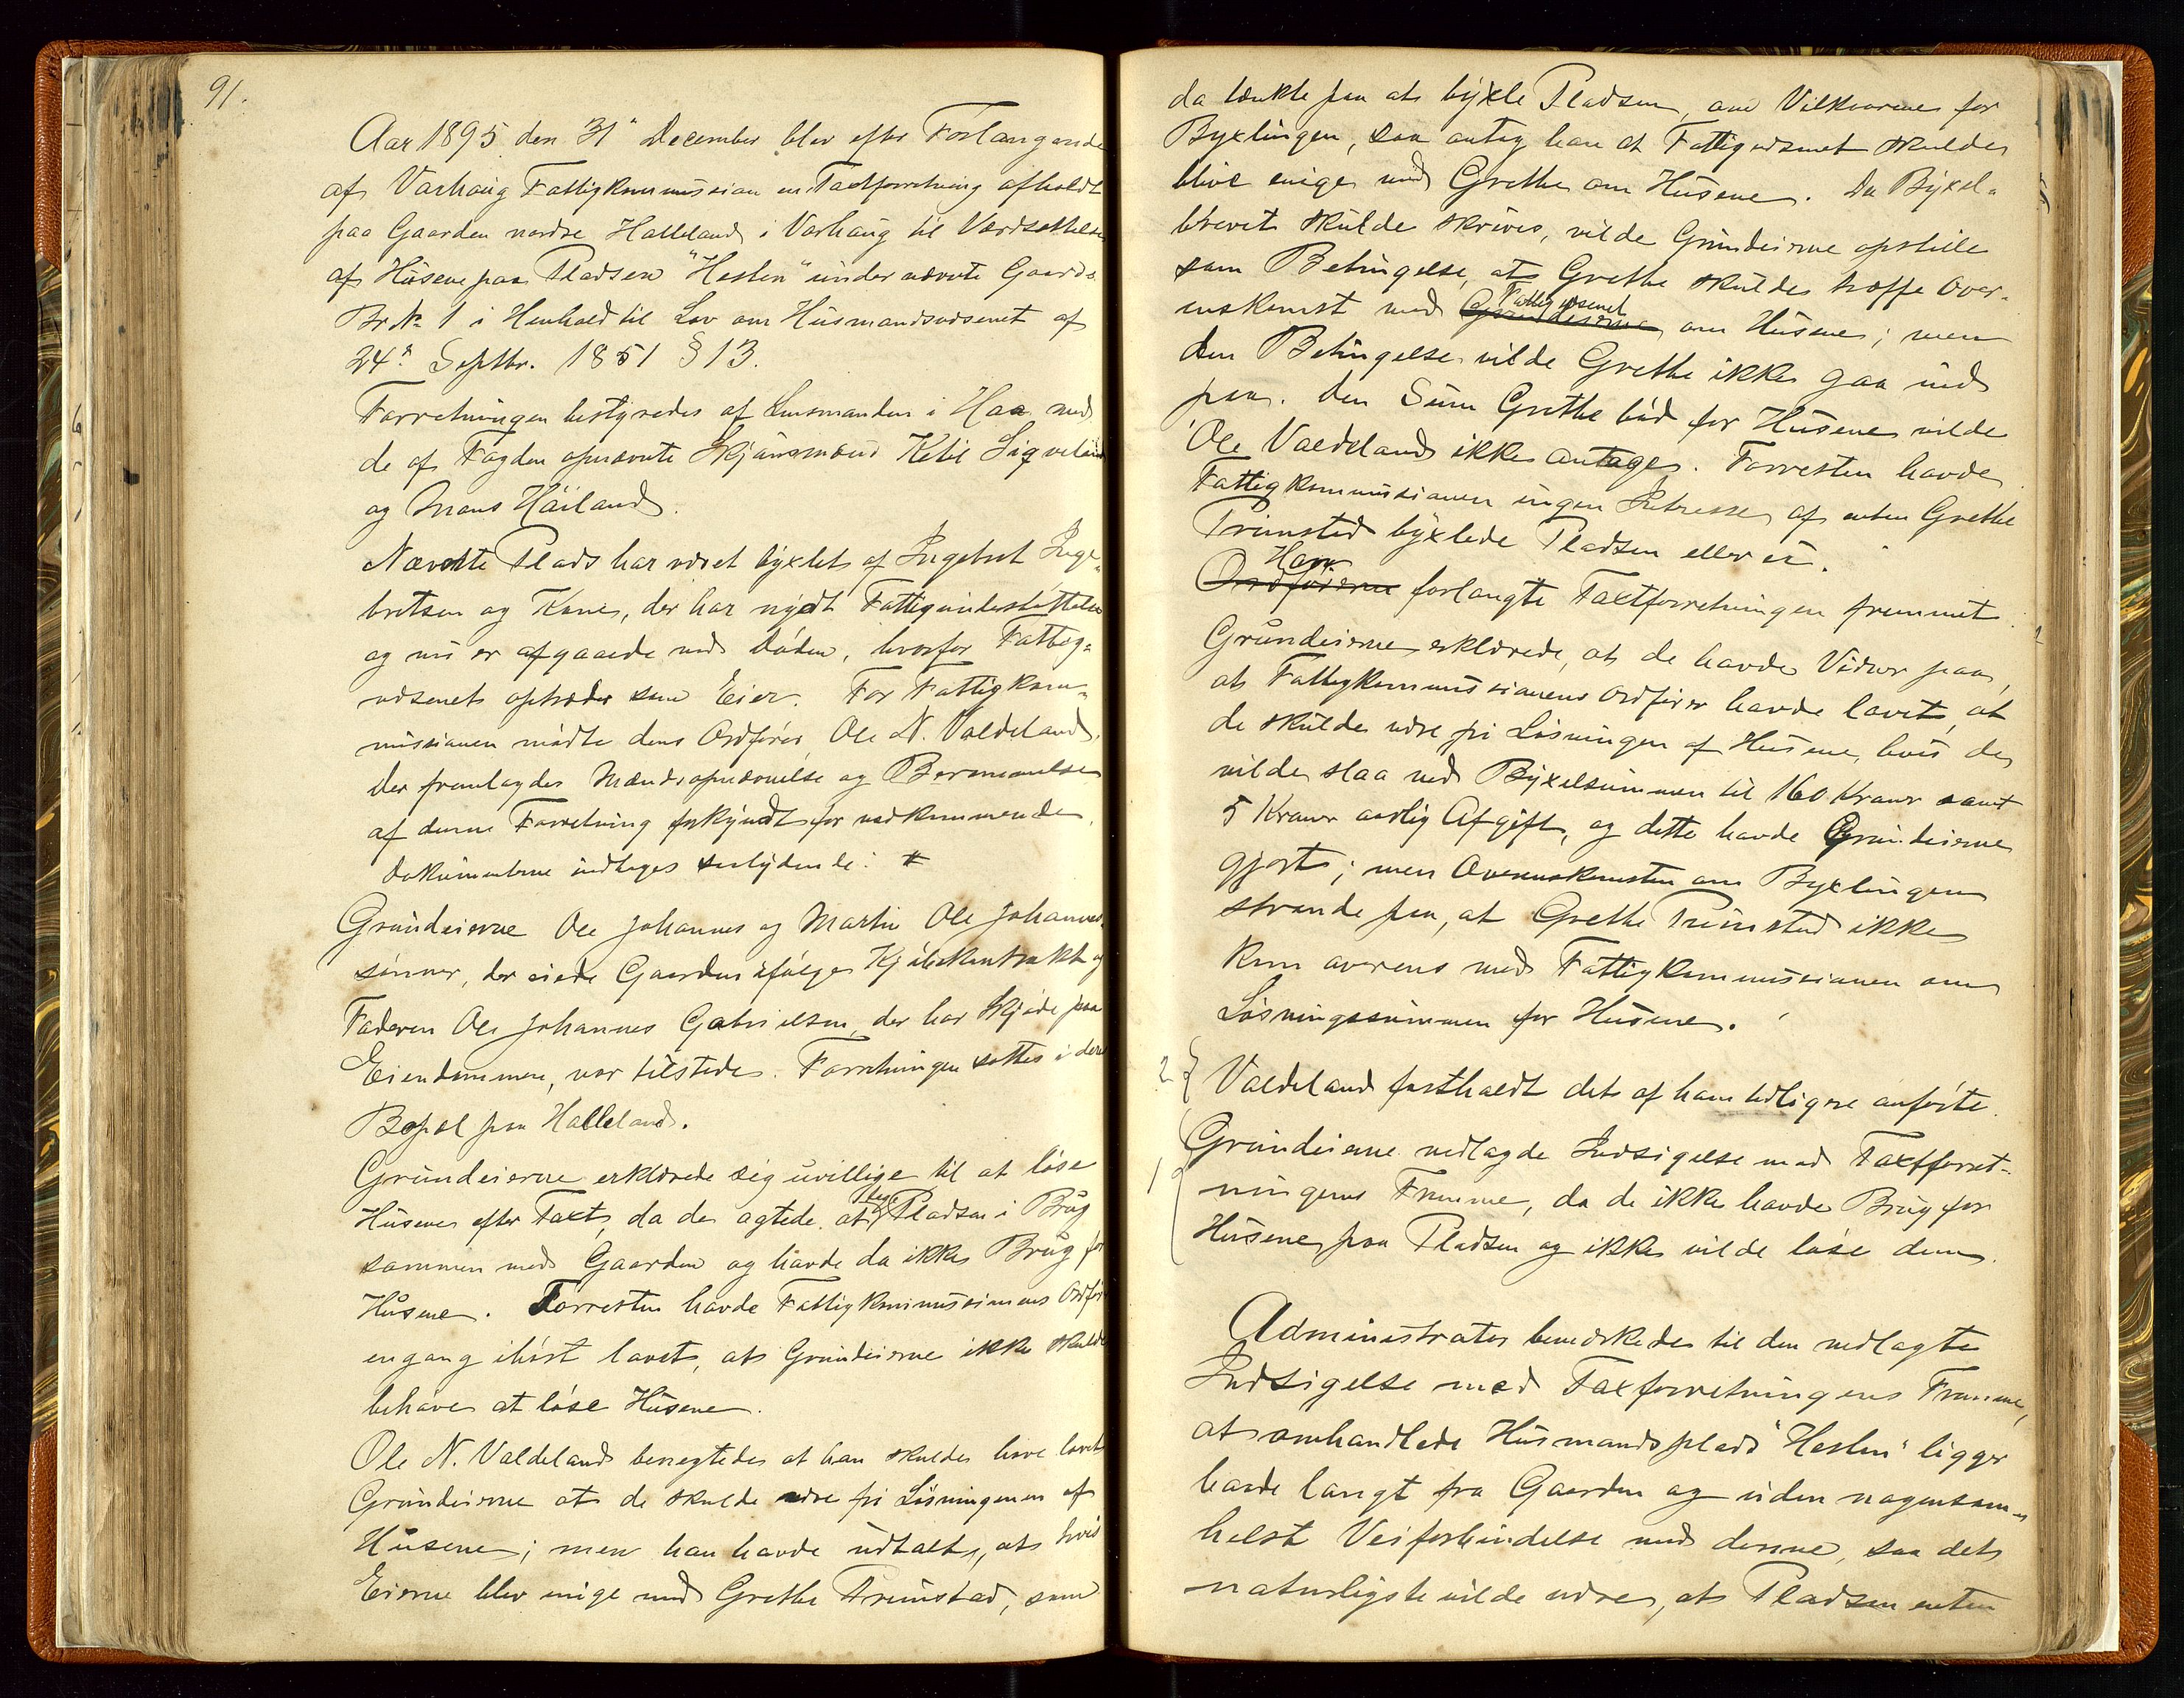 91.
Aar 1895 den 31' December blev efter Forlangende
af Varhaug Fattigkommission en Taxtforretning afholdt
paa Gaarden nordre Halleland i Varhaug til Værdsættelse
af Husene paa Pladsen "Hesten" under nævnte Gaards
Br. № 1 i Henhold til Lov om Husmandsvæsenet af
24de Septbr. 1851 § 13.
Forretningen bestyredes af Lensmanden i Haa med
de af Fogden opnævnte Skjønsmænd Ketil Sigveland
og Mons Høiland.
Nævnte Plads har været byxlet af Ingebret Inge-
bretsen og Kone, der har nydt Fattigunderstøttelse
og nu er afgaaede ved Døden, hvorfor Fattig-
væsenet optræder som Eier. For Fattigkom-
missionen mødte dens Ordfører Ole N. Valdeland.
Der fremlagdes Mændsopnævnelse og Berammelse
af denne Forretning forkyndt for vedkommende.
Dokumenterne indtages saalydende: #
Grundeierne Ole Johannes og Martin Ole Johannes-
sønner, der eiede Gaarden ifølge Kjøbekontrakt af
Faderen Ole Johannes Gabrielsen, der har Skjøde paa
Eiendommen, var tilstede. Forretningen sattes i deres
Bopæl paa Halleland.
Grundeierne erklærede sig uvillige til at løse
Husene efter Taxt, da de agtede at tage Pladsen i Brug
sammen med Gaarden og havde da ikke Brug for
Husene. Forresten havde Fattigkommissionens Ordfør
engang ihøst lovet, at Grundeierne ikke skulde
behøve at løse Husene.
Ole N. Valdeland benegtede at han skulde have lovet
Grundeierne at de skulde være fri Løsningen af
Husene; men han havde udtalt, at hvis
Eierne blev enige med Grethe Primstad, som
da tænkte paa at byxle Pladsen, om Vilkaarene for
Byxlingen, saa antog han at Fattigvæsenet skulde
blive enige med Grethe om Husene. Da Byxel-
brevet skulde skrives, vilde Grundeierne opstille
som Betingelse, at Grethe skulde træffe Over-
enskomst med Grundeierne Fattigvæsenet om Husene; men
den Betingelse vilde Grethe ikke gaa ind
paa. Den Sum Grethe bød for Husene vilde
Ole Valdeland ikke antage. Forresten havde
Fattigkommissionen ingen Interesse af enten Grethe
Primstad byxlede Pladsen eller ei.
Ordføreren Han forlangte Taxtforretningen fremmet.
Grundeierne erklærede, at de havde Vidner paa,
at Fattigkommissionens Ordfører havde lovet, at
de skulde være fri Løsningen af Husene, hvis de
vilde slaa ned Byxelsummen til 160 Kroner samt
5 Kroner aarlig Afgift, og dette havde Grundeierne
gjort; men Overenskomsten om Byxlingen
strande paa, at Grethe Primstad ikke
kom overens med Fattigkommissionen om
Løsningssummen for Husene.
2 Valdeland fastholdt det af ham tidligere anførte.
Grundeierne nedlagde Indsigelse mod Taxtforret-
1 ningens Fremme, da de ikke havde Brug for
Husene paa Pladsen og ikke vilde løse dem.
Administrator bemærkede til den nedlagte
Indsigelse mod Taxforretningens Fremme,
at omhandlede Husmandsplads "Hesten" ligger
havde langt fra Gaarden og uden nogensom-
helst Veiforbindelse med denne, saa det
naturligste vilde være, at Pladsen enten